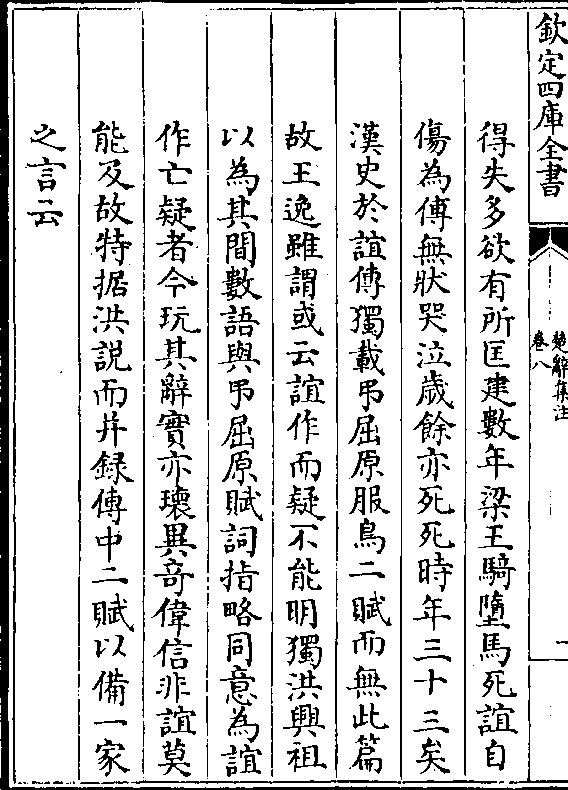 欽定四庫全書
楚辭集注
卷八
得失多欲有所匡建數年梁王騎墮馬死誼自
傷為傅無狀哭泣歲餘亦死死時年三十三矣
漢史於誼傳獨載弔屈原服鳥二賦而無此篇
故王逸雖謂或云誼作而疑不能明獨洪興祖
以為其間數語與弔屈原賦詞指略同意為誼
作亡疑者今玩其辭實亦瓌異奇偉信非誼莫
能及故特据洪説而并録傳中二賦以備一家
之言云